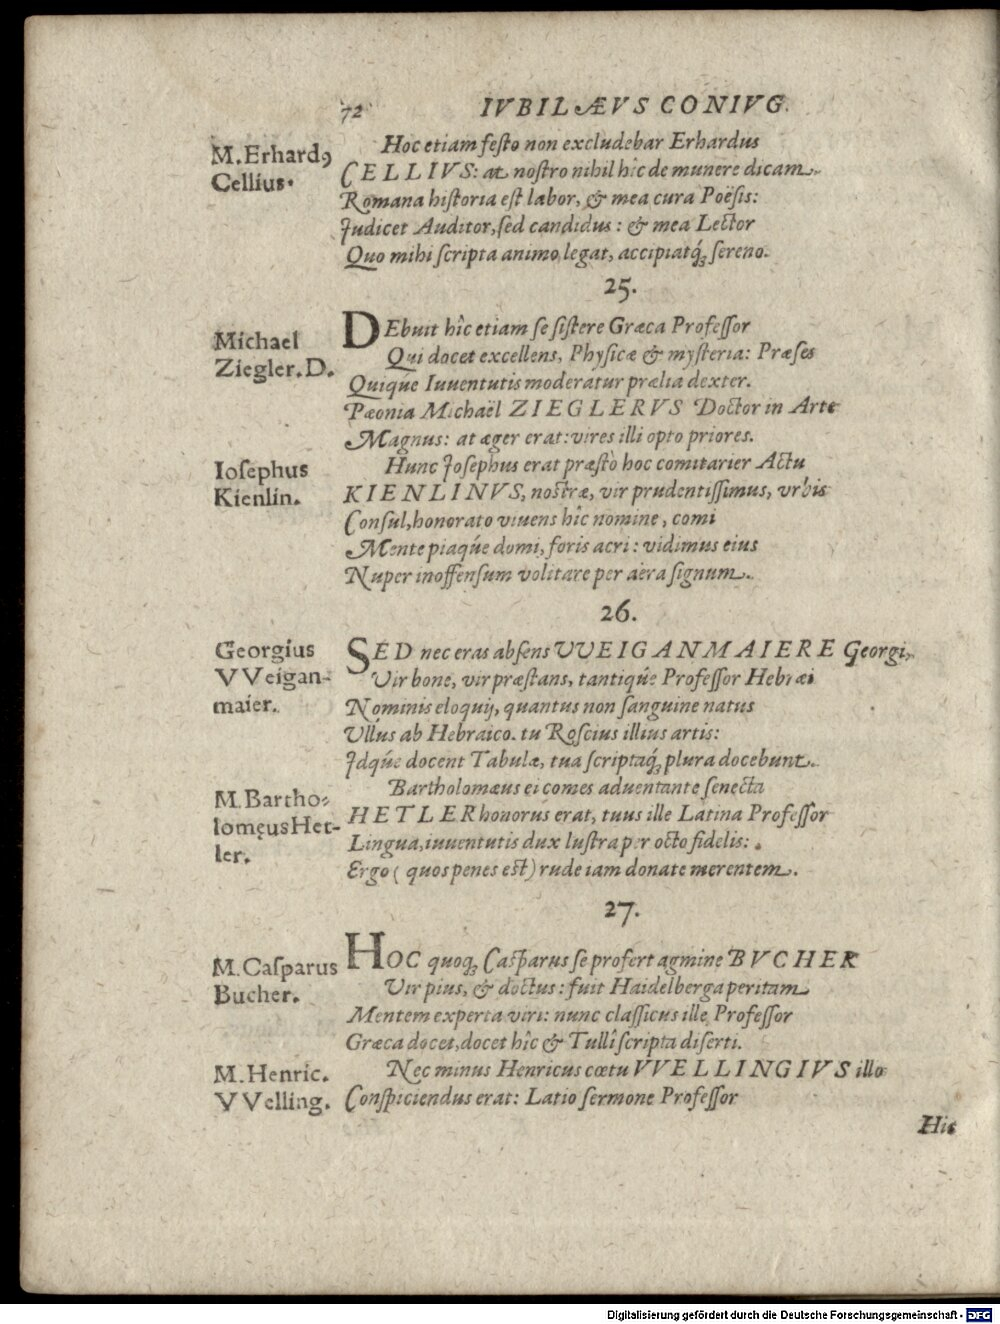 72 IVBILÆVS CONIVG.
M. Erhardꝰ
Cellius.
Hoc etiam feſto non excludebar Erhardus
CELLIVS: at noſtro nihil hîc de munere dicam.
Romana hiſtoria eſt labor, & mea cura Poëſis:
Judicet Auditor, ſed candidus: & mea Lector
Quo mihi ſcripta animo, legat, accipiatq́; ſereno.
25.
Michael
Ziegler. D.
DEbuit hîc etiam ſe ſiſtere Græca Profeſſor
Qui docet excellens, Phyſicæ & myſteria: Præſes
Quiqúe Iuuentutis moderatur prælia dexter.
Pæonia Michaël ZIEGLERVS Doctor in Arte
Magnus: at æger erat: vires illi opto priores.
Ioſephus
Kienlin.
Hunc Joſephus erat præſtò hoc comitarier Actu
KIENLINVS, noſtræ, vir prudentiſſimus, vrbis
Conſul, honorato viuens hîc nomine, comi
Mente piaqúe domi, foris acri: vidimus eius
Nuper inoffenſum volitare per aëra ſignum.
26.
Georgius
VVeigan-
maier.
SED nec eras abſens VVEIGANMAIERE Georgi,
Vir bone, vir præſtans, tantiqúe Profeſſor Hebræi
Nominis eloquij, quantus non ſanguine natus
Vllus ab Hebraico. tu Roſcius illius artis:
Jdqúe docent Tabulæ, tua ſcriptaq́; plura docebunt.
M. Bartho-
lomęus Het-
ler.
Bartholomæus ei comes aduentante ſenecta
HETLER honorus erat, tuus ille Latina Profeſſor
Lingua, iuuentutis dux luſtra per octo fidelis:
Ergo (quos penes eſt) rude iam donate merentem.
27.
M. Caſparus
Bucher.
HOC quoq; Caſparus ſe profert agmine BVCHER
Vir pius, & doctus: fuit Haidelberga peritam
Mentem experta viri: nunc claſſicus ille Profeſſor
Græca docet, docet hîc & Tullî ſcripta diſerti.
M. Henric.
VVelling.
Nec minus Henricus cœtu VVELLINGIVS illo
Conſpiciendus erat: Latio ſermone Profeſſor
Hic
Digitalisierung gefördert durch die Deutsche Forschungsgemeinschaft - DFG